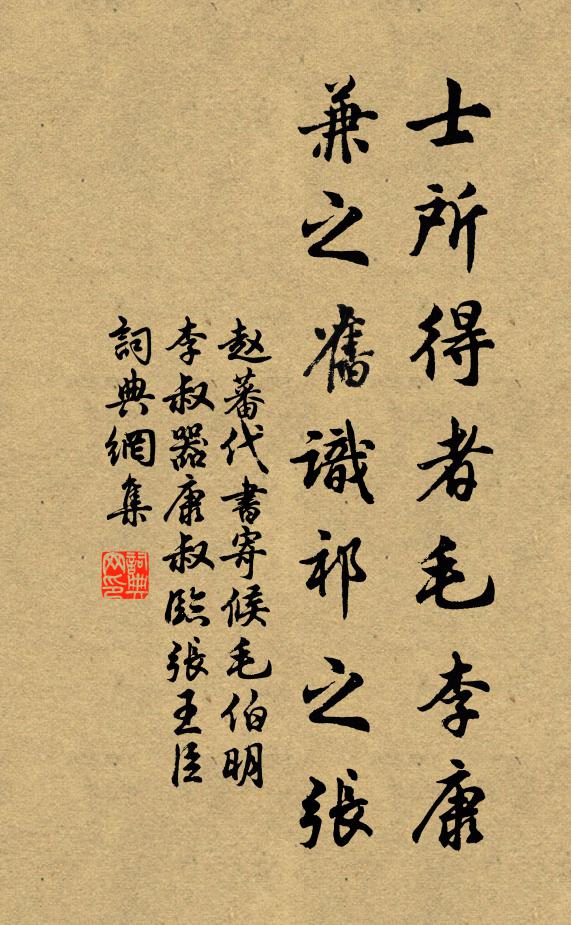 士所得者毛李康
兼之舊識祁之張
赵蕃代書寄候毛伯明
李叔器康叔臨張王臣
詞典網集
詞典網印